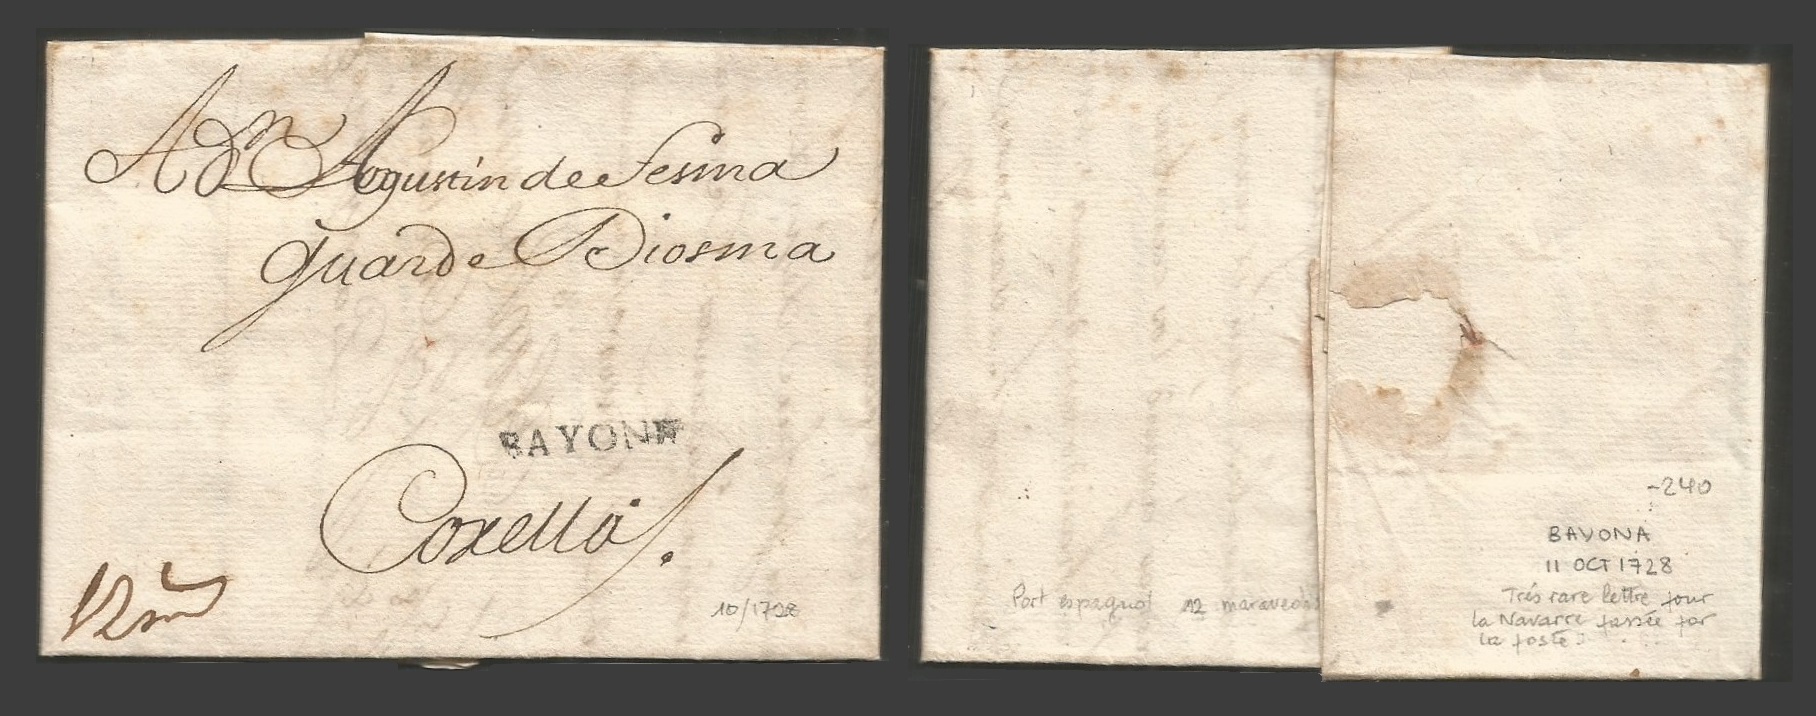 A Dn Aogustin de Sesma
guarde Diosma
BAYONA
Coxella
12 ms
10/1728
-240
BAYONA
11 OCT 1728
Port espagnol 12 maravedis
Trés rare lettre pour
la Navarre passée par
la poste